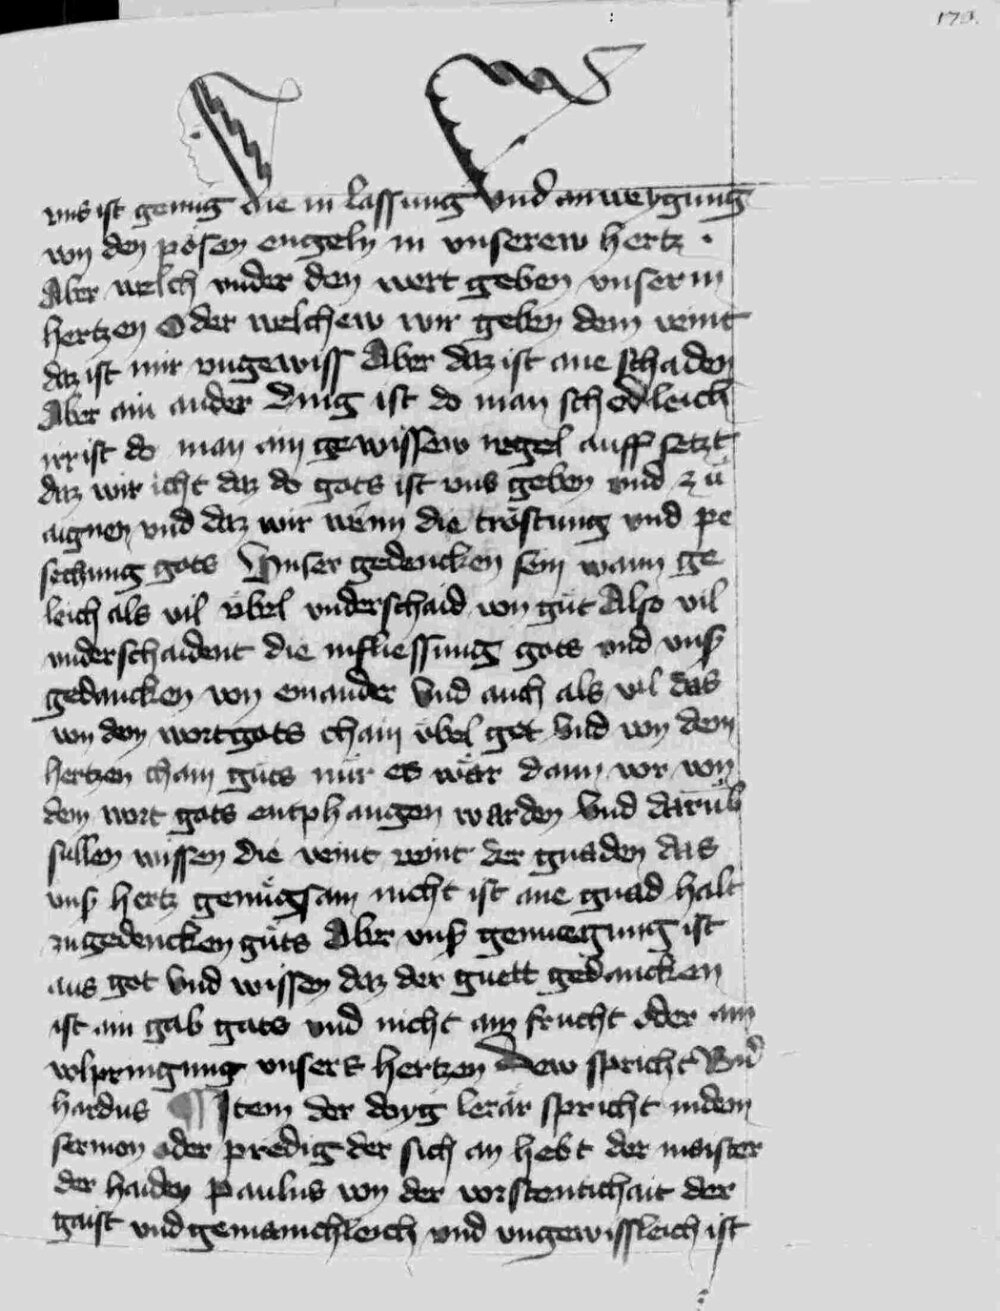 173.
uns ist genug die in lassung und anweygung
von den pösen engeln in unserew hertz .
Aber welch under den wert geben unserm
hertzen Oder welchew wir geben dem veint
daz ist mir ungewiss Aber daz ist ane schaden
Aber ain ander ding ist do man schedleich
irr ist do man ain gewissew regel auff setzt
daz wir icht daz do gots ist uns geben und zů
aignen und daz wir wenn die tröstung und pe
sechung gots Unser gedencken sein wann ge
leich als vil übel underschaid von gůt Also vil
underschaident die infliessung gots und unß
gedancken von einander Und auch als vil das
von dem wort gots chain übel get Und von dem
hertzen chain gůts nür es wär dann vor von
dem wort gots entphangen warden Und darub
sullen wissen die veint veint der gnaden das
unß hertz genůgsam nicht ist ane gnad halt
zu gedencken gůts Aber unß genuegung ist
aus got Und wissen daz der guett gedancken
ist ain gab gots und nicht ain frucht oder ain
volpringung unsers hertzen Dew spricht Bern
hardus ¶ Item der doyg lerär spricht in dem
sermon oder predig der sich an hebt der maister
der haiden Paulus von der vorstentichait der
gaist und gemainchleich und ungewissleich ist